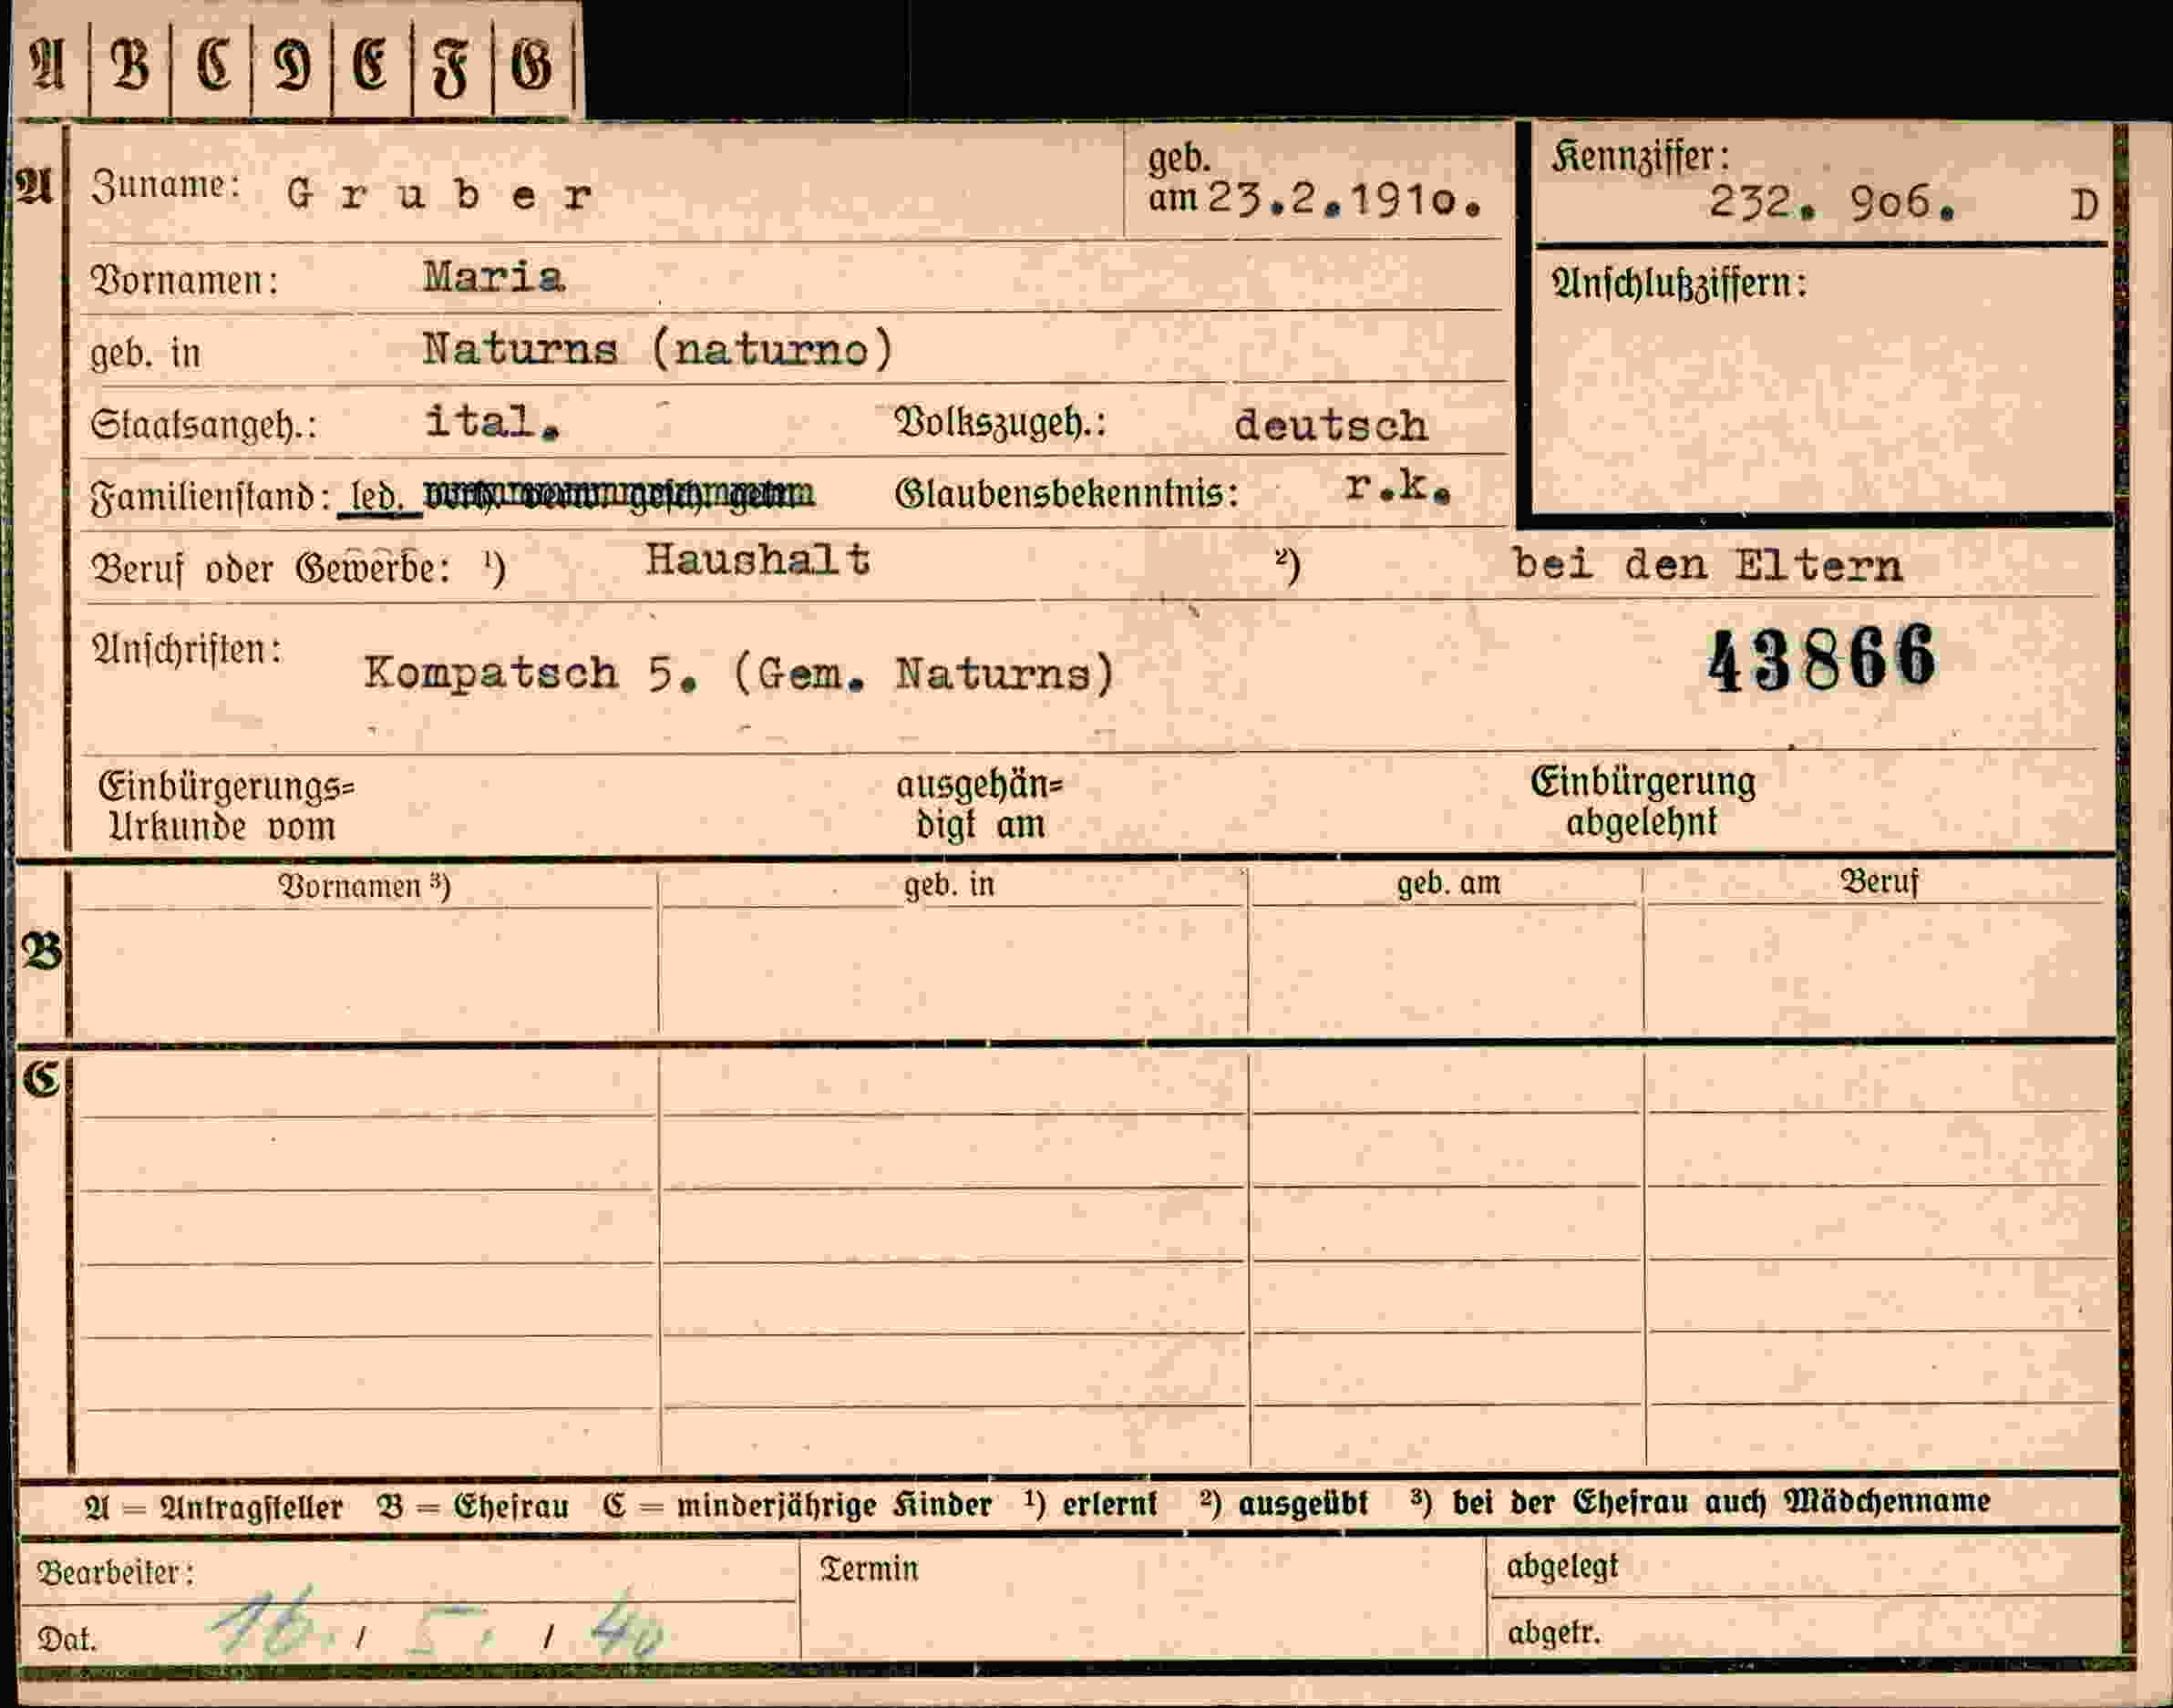 A B C D E F G
A Zuname: Gruber geb. am 23.2.1910. Kennziffer: 232. 906. D
Vornamen: Maria Anschlußziffern:
geb. in Naturns (naturno)
Staatsangeh.: ital. Volkszugeh.: deutsch
Familienstand: led. Glaubensbekenntnis: r.k.
Beruf oder Gewerbe: ¹) Haushalt ²) bei den Eltern
Anschriften: Kompatsch 5. (Gem. Naturns) 43866
Einbürgerungs= ausgehän= Einbürgerung
Urkunde vom digt am abgelehnt
Vornamen ³) geb. in geb. am Beruf
B
C
A = Antragsteller B = Ehefrau C = minderjährige Kinder ¹) erlernt ²) ausgeübt ³) bei der Ehefrau auch Mädchenname
Bearbeiter: Termin abgelegt
Dat. 16. / 5. / 40 abgetr.